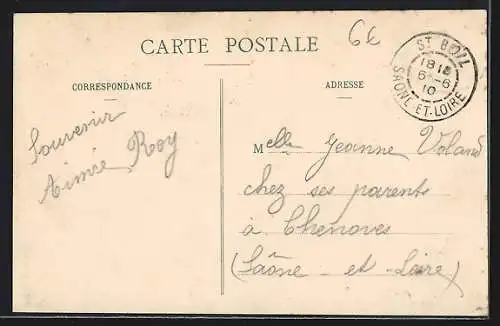 6€
CARTE POSTALE
ST BOIL
1815
6-6
10
SAONE-ET-LOIRE
CORRESPONDANCE
ADRESSE
Souvenir
Aimée Roy
Melle Jeanne Voland
chez ses parents
à Chenoves
(Saône-et-Loire)